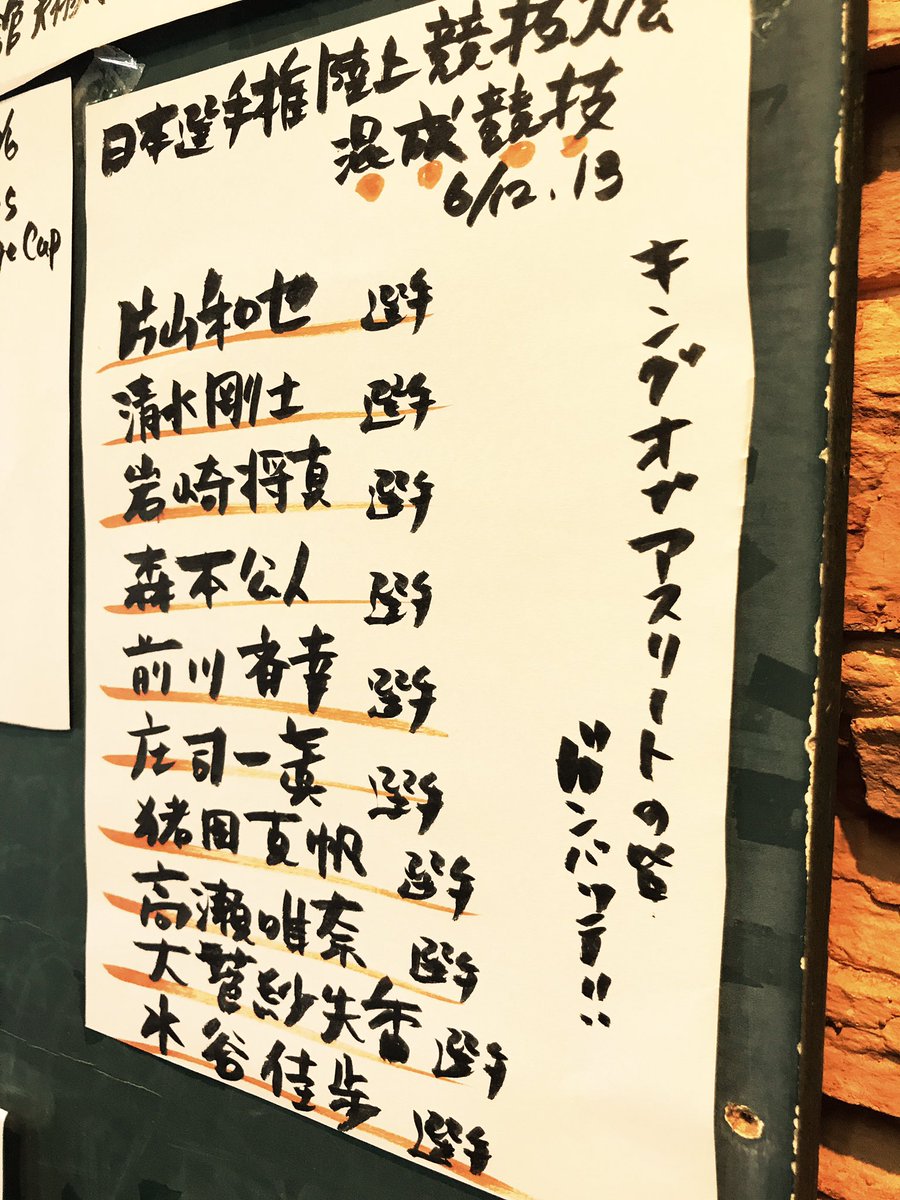 日本選手権陸上競技大会
混成競技
6/12.13
キングオブアスリートの皆
ガンバッテ!!
片山和也 選手
清水剛士 選手
岩崎将真 選手
森本公人 選手
前川斉幸 選手
庄司一眞 選手
猪岡真帆 選手
高瀬唯奈 選手
大菅紗矢香 選手
水谷佳歩 選手
Cup